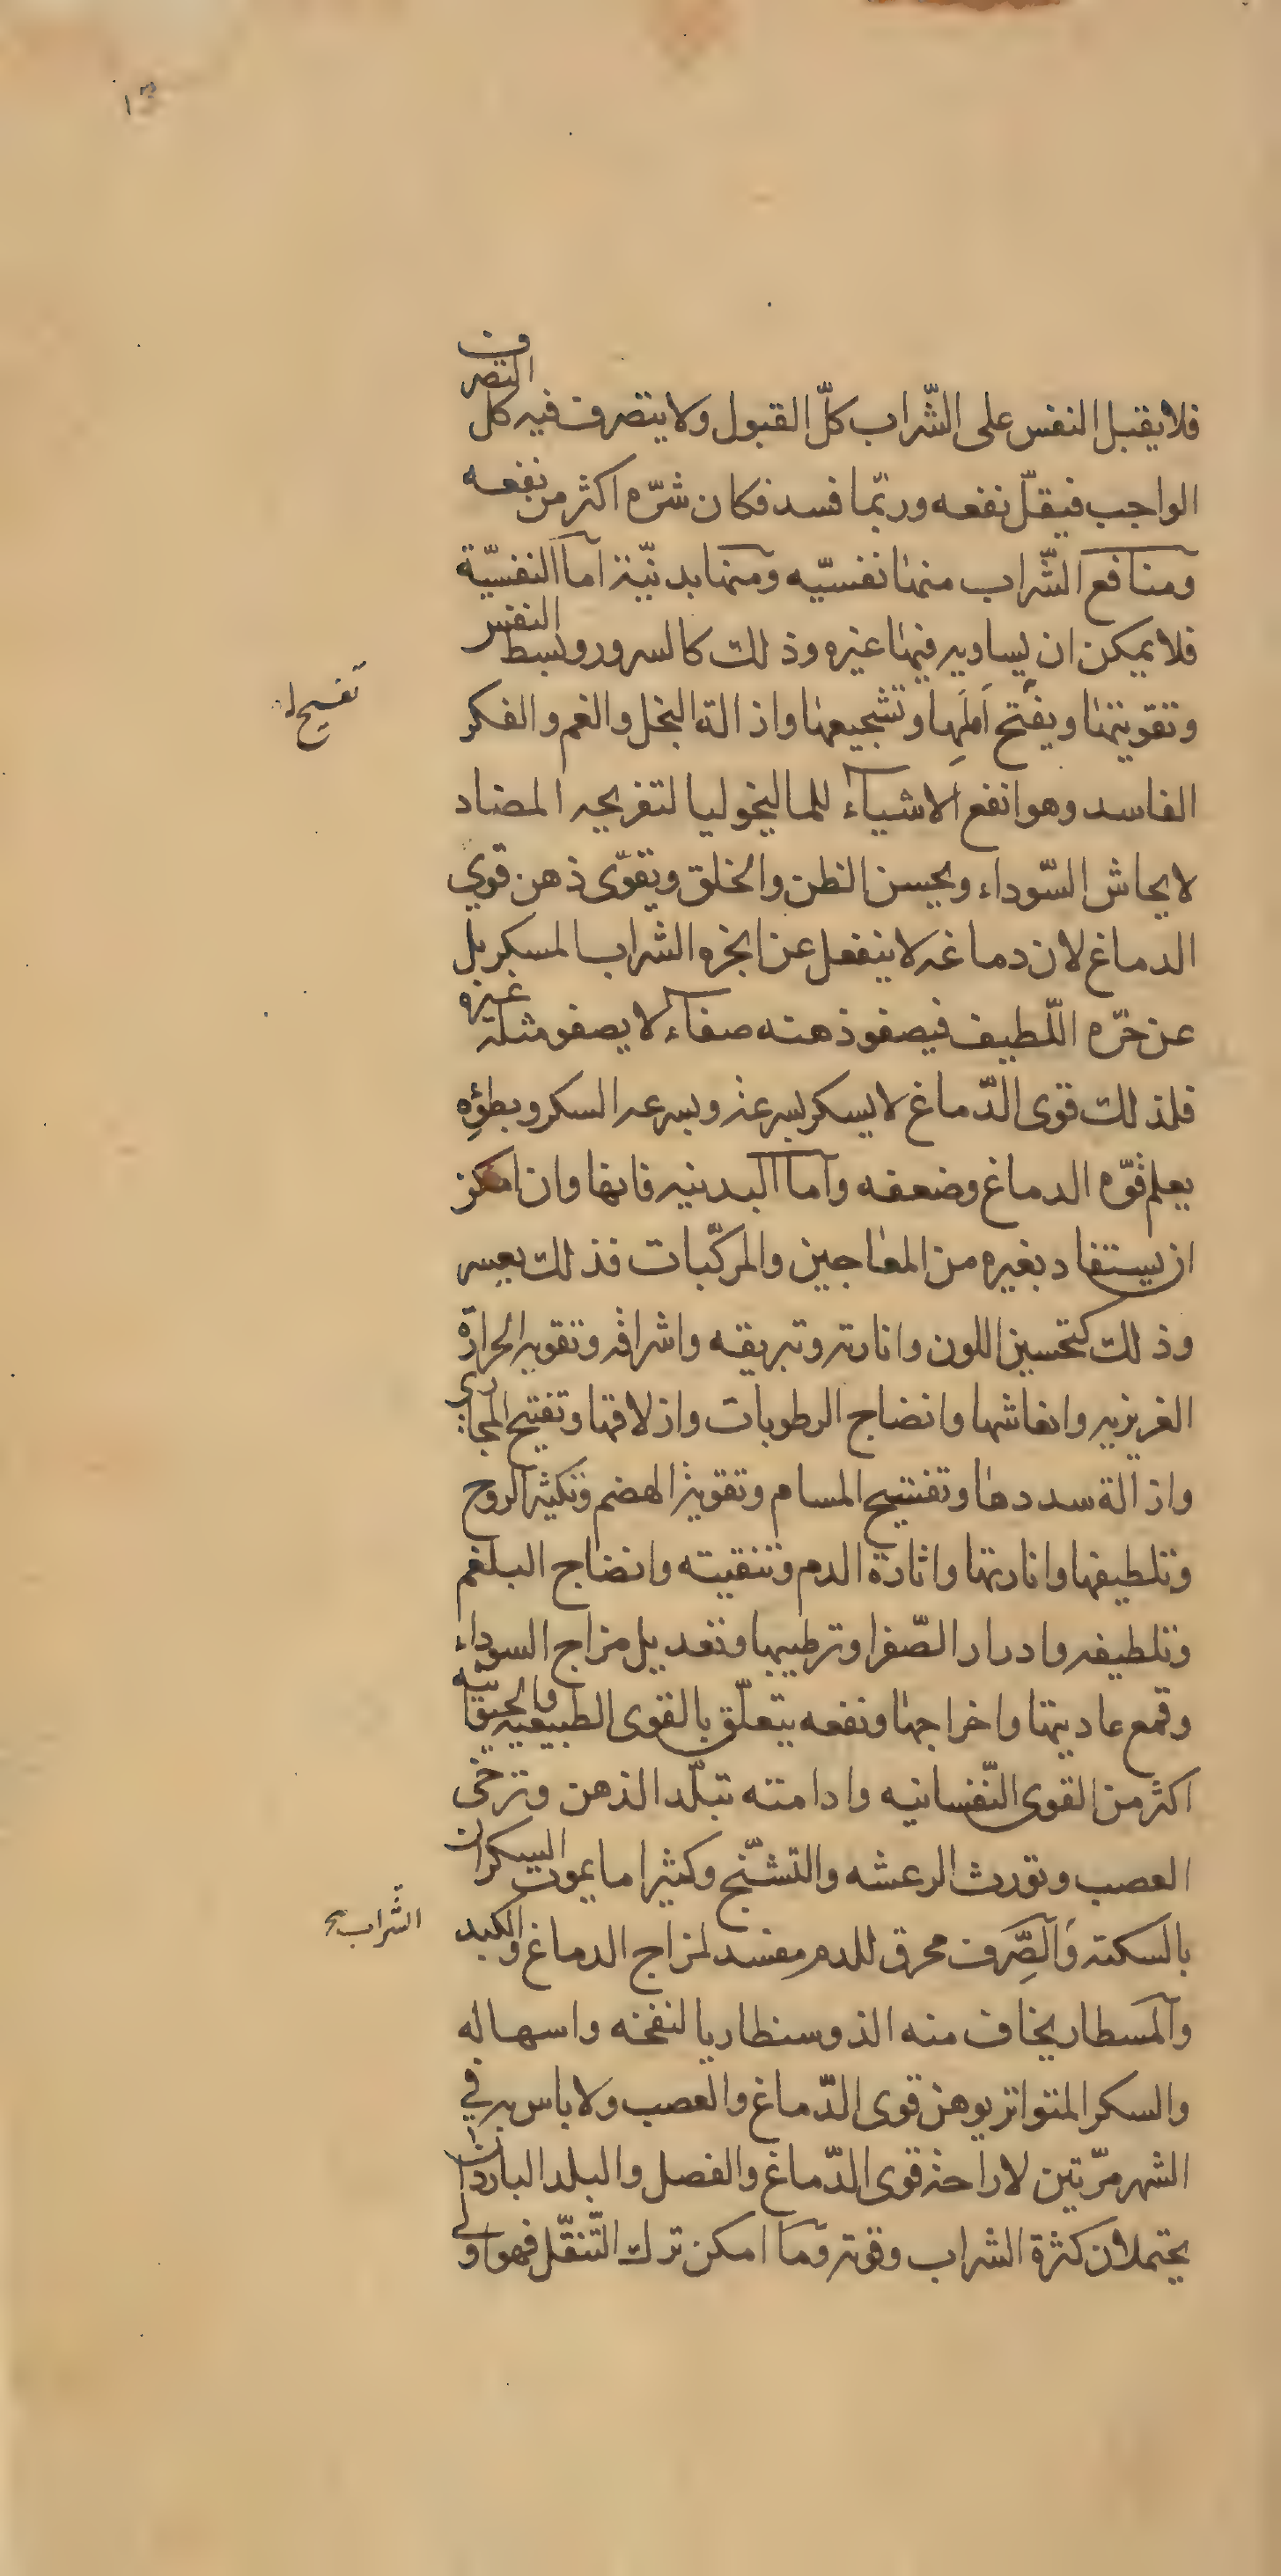 فلا يقبل النفس على الشّراب كلّ القبول ولا يتصرف فيه كل التصرف
الواجب فيقلّ نفعه وربّما فسد فكان شرّه اكثر من نفعه
ومنافع الشّراب منها نفسيّه ومنها بدنيّة اما النفسيّة
فلا يمكن ان يساويه فيها غيره وذلك كالسرور وبسط النفس
وتقويتها ويفتح اَملِها وتشجيعها وازالة البخل والغم والفكر
تفسيح
الفاسد وهو انفع الاشياء للماليخوليا لتفريحه المضاد
لايحاش السّوداء ويحسن الظن والخلق ويقوّى ذهن قوي
الدماغ لان دماغه لا ينفعل عن ابخره الشراب المسكر بل
عن حرّه اللّطيف فيصفو ذهنه صفاء لا يصفو مثله غيره
فلذلك قوى الدّماغ لا يسكر بسرعة وبسرعه السكر وبطؤِه
يعلم قوّه الدماغ وضعفه واما البدنيه فانها وان امكن
ان يستفاد بغيره من المعاجين والمركّبات فذلك بعسر
وذلك كتحسين اللون وانارته وتبريقه واشراقه وتقويه الحرارة
الغريزيه وانعاشها وانضاج الرطوبات وازلاقها وتفتيح المجاري
وازالة سددها وتفتيح المسام وتقوية الهضم وتكثير الروح
وتلطيفها وانارتها واثارة الدم وتنقيته وانضاج البلغم
وتلطيفه وادرار الصّفرا وترطيبها وتعديل مزاج السوداء
وقمع عاديتها واخراجها ونفعه يتعلّق بالقوى الطبيعيه والحيوانيّه
اكثر من القوى النّفسانيه وادامته تبلّد الذهن وترخى
العصب وتورث الرعشه والتشنّج وكثيرا ما يموت السكران
بالسكته وَالصِّرف محرق للدم مفسد لمزاج الدماغ والكبد
الشّراب
والمسطار يخاف منه الذوسنطاريا لنفخه واسهاله
والسكر المتواتر يوهن قوى الدّماغ والعصب ولا باس به في
الشهر مرّتين لاراحة قوى الدّماغ والفصل والبلد الباردان
يحتملان كثرة الشراب وقوته وما امكن ترك التّنقّل فهو اولى